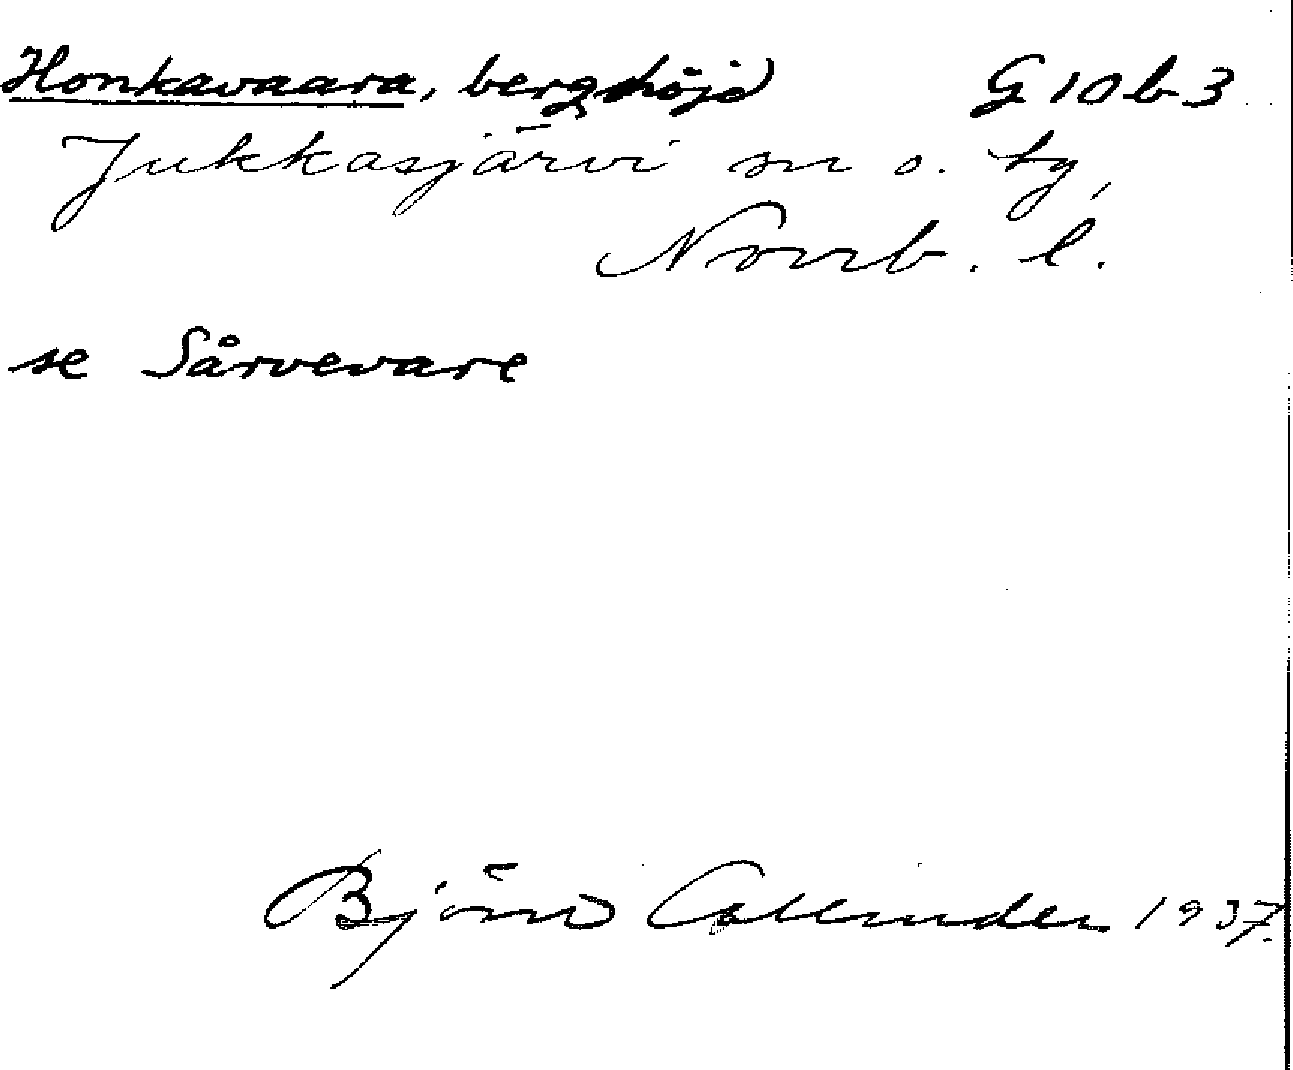 Honkavaara, bergshöjd G 10 b 3
Jukkasjärvi sn o. tg,
Norrb. l.
se Sårvevare
Björn Collinder 1937.